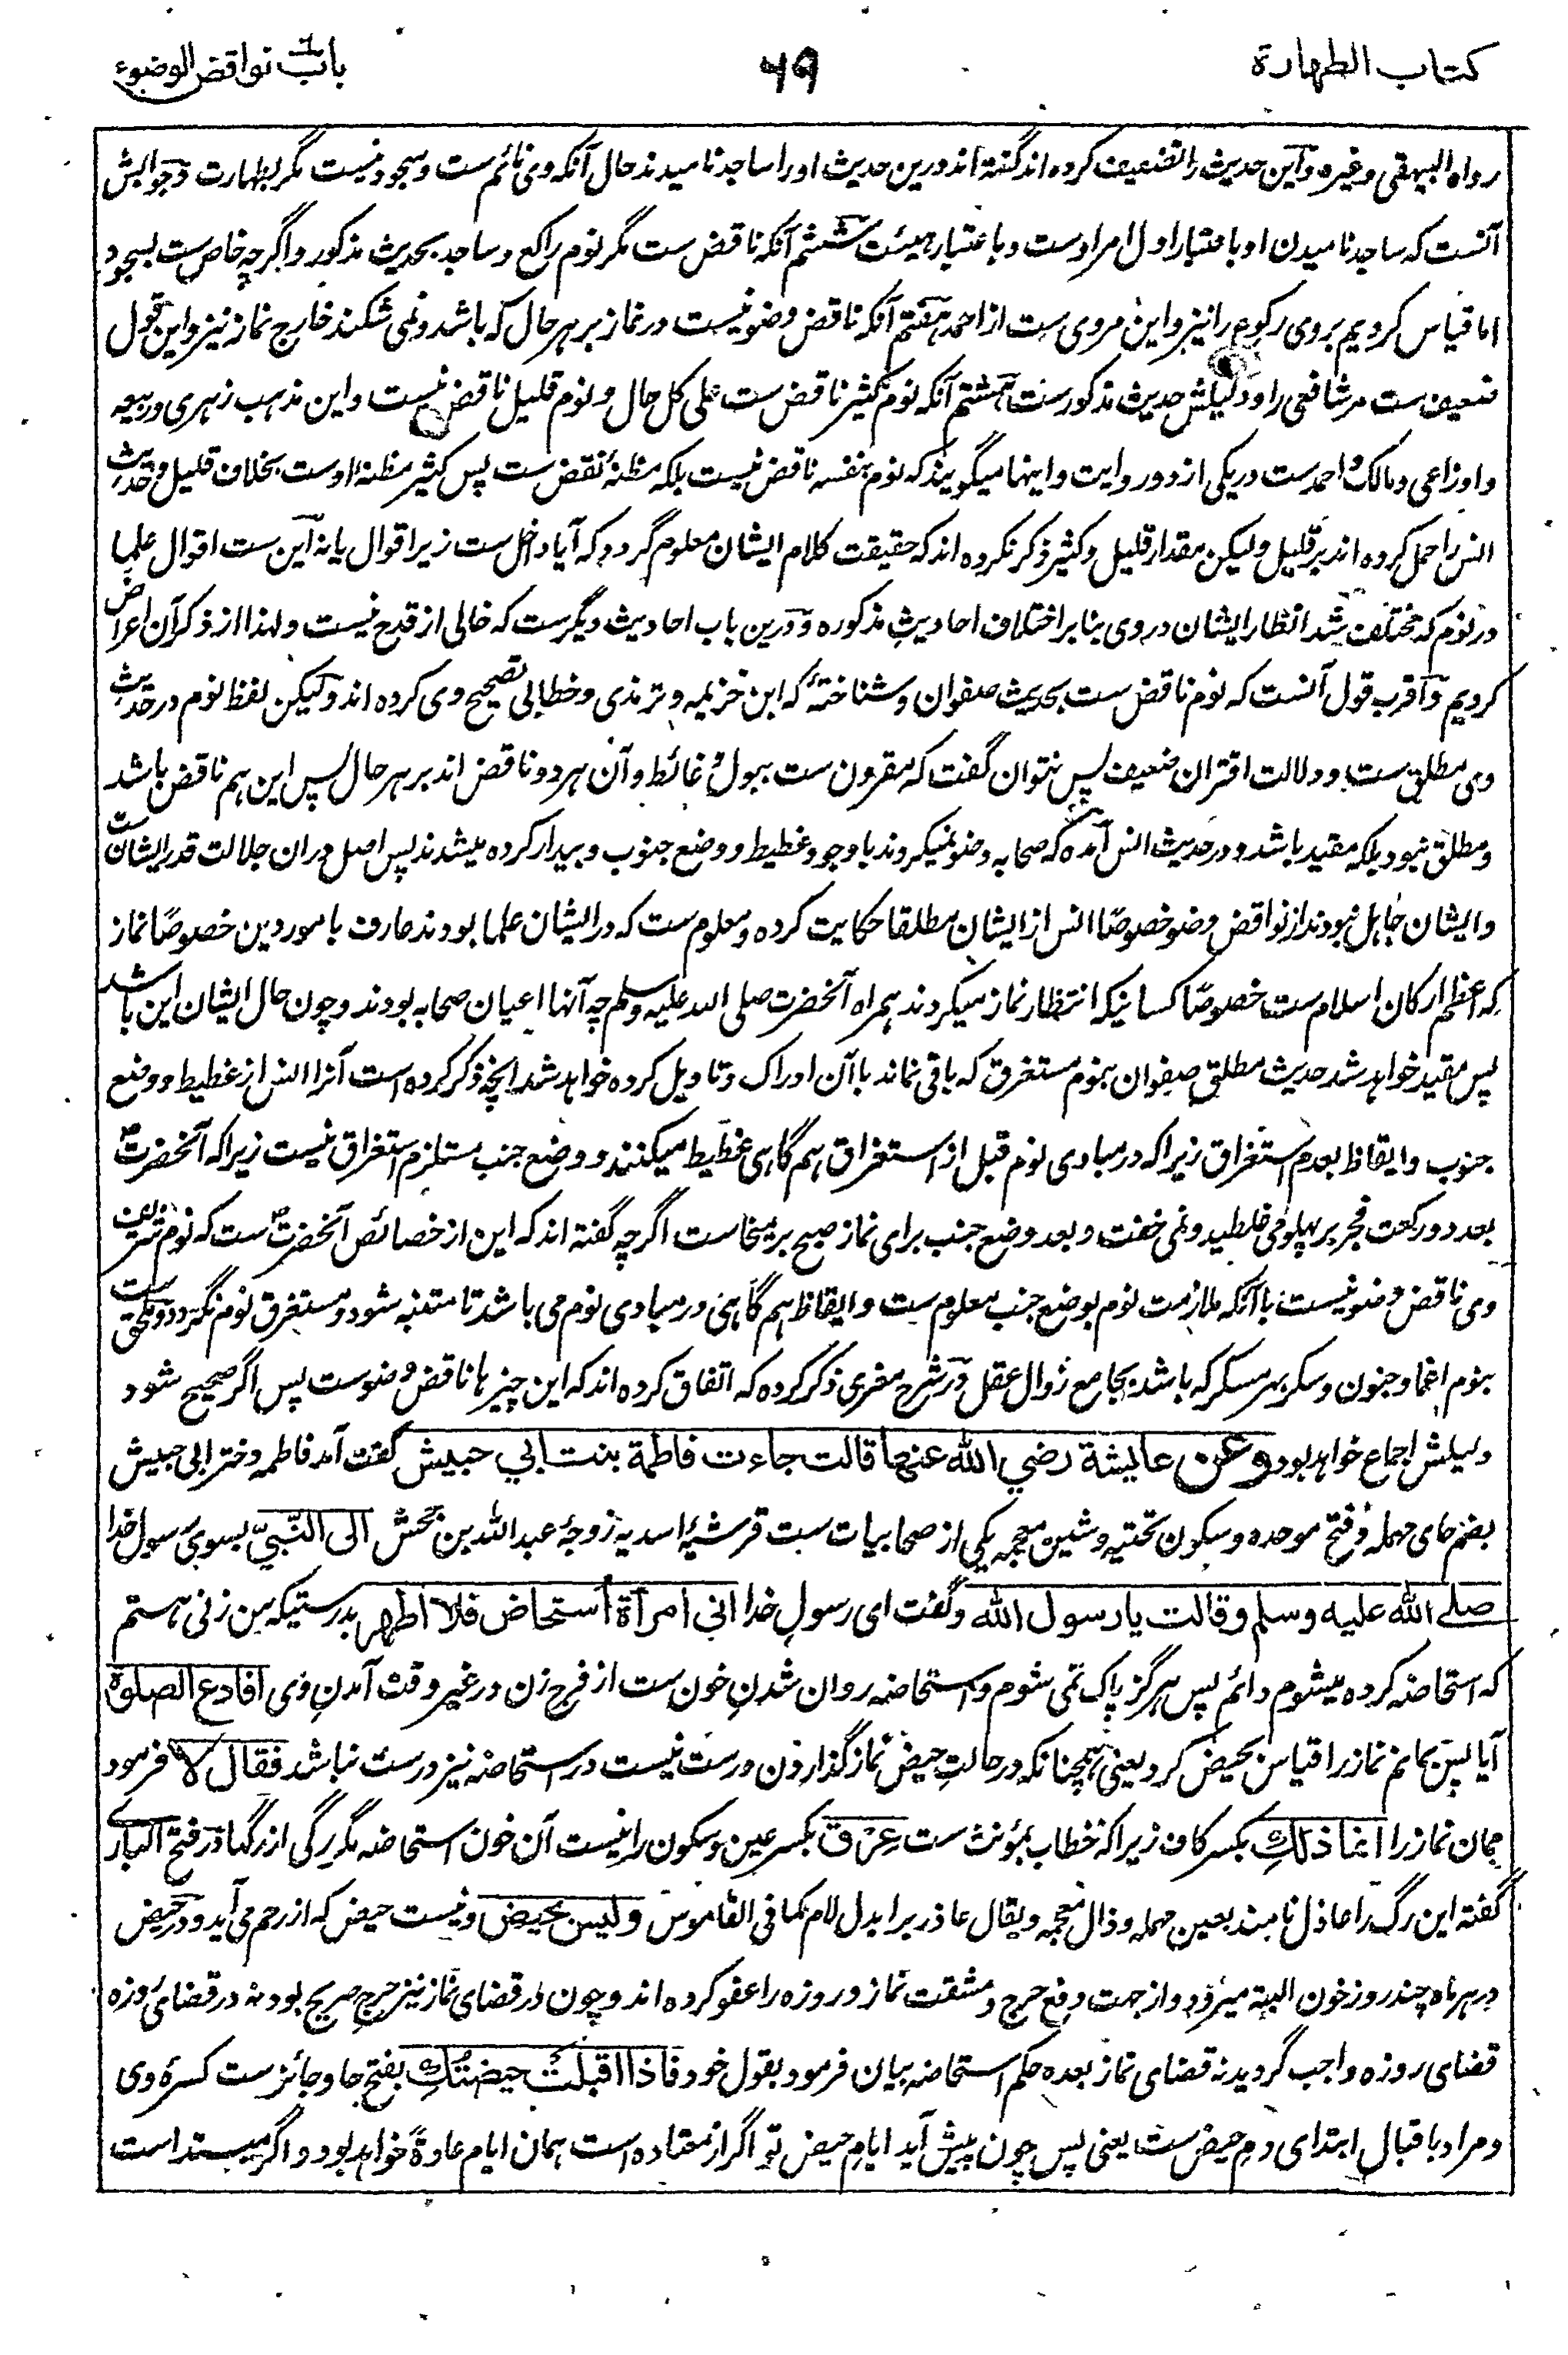 کتاب الطهارة
۶۹
باب نواقض الوضوء
رواه البیهقی وغیره و این حدیث را تضعیف کرده اند گفته اند درین حدیث او را ساجد نامیدند حال آنکه وی نائم ست وسجود نیست مگر بطهارت وجوابش
آنست که ساجد نامیدن او باعتبار اول امر اوست و باعتبار هیئت ششم آنکه ناقض ست مگر نوم راکع و ساجد بحدیث مذکور و اگرچه خاص ست بسجود
اما قیاس کردیم بروی رکوع را نیز و این مروی ست از احمد هفتم آنکه ناقض وضو نیست در نماز بر هر حال که باشد و نمی شکند خارج نماز نیز و این قول
ضعیف ست مر شافعی را و دلیلش حدیث مذکور ست هشتم آنکه نوم کثیر ناقض ست علی کل حال و نوم قلیل ناقض نیست و این مذهب زهری و ربیعه
و اوزاعی و مالک و احمد ست در یکی از دو روایت و اینها میگویند که نوم بنفسه ناقض نیست بلکه مظنهٔ نقض ست پس کثیر مظنهٔ اوست بخلاف قلیل و حدیث
انس را حمل کرده اند بر قلیل ولیکن مقدار قلیل و کثیر ذکر نکرده اند که حقیقت کلام ایشان معلوم گردد که آیا داخل ست زیر اقوال یا نه این ست اقوال علما
در نوم که مختلف شد انظار ایشان در وی بنا بر اختلاف احادیث مذکوره و درین باب احادیث دیگر ست که خالی از قدح نیست و لهذا از ذکر آن اعراض
کردیم و اقرب قول آنست که نوم ناقض ست بحدیث صفوان و شناختهٔ که ابن خزیمه و ترمذی و خطابی تصحیح وی کرده اند ولیکن لفظ نوم در حدیث
وی مطلق ست و دلالت اقتران ضعیف پس نتوان گفت که مقرون ست ببول و غائط و آن هر دو ناقض اند بر هر حال پس این هم ناقض باشد
و مطلق نبود بلکه مقید باشد و در حدیث انس آمده که صحابه وضو نمیکردند با وجود غطیط و وضع جنوب و بیدار کرده میشدند پس اصل در ان جلالت قدر ایشان ست
و ایشان جاهل نبودند از نواقض وضو خصوصًا انس از ایشان مطلقا حکایت کرده و معلوم ست که در ایشان علما بودند عارف بامور دین خصوصًا نماز
که اعظم ارکان اسلام ست خصوصًا کسانیکه انتظار نماز میکردند همراه آنحضرت صلی الله علیه وسلم چه آنها اعیان صحابه بودند و چون حال ایشان این باشد
پس مقید خواهد شد حدیث مطلق صفوان بنوم مستغرق که باقی نماند با آن ادراک و تاویل کرده خواهد شد انچه ذکر کرده است آنرا انس از غطیط و وضع
جنوب و ایقاظ بعدم استغراق زیرا که در مبادی نوم قبل از استغراق هم گاهی غطیط میکنند و وضع جنب مستلزم استغراق نیست زیرا که آنحضرت ؐ
بعد دو رکعت فجر بر پهلو می غلطید و نمی خفت و بعد وضع جنب برای نماز صبح بر میخاست اگرچه گفته اند که این از خصائص آنحضرت ؐ ست که نوم شریف
وی ناقض وضو نیست با آنکه ملازمت نوم بوضع جنب معلوم ست و ایقاظ هم گاهی در مبادی نوم می باشد تا متنبه شود و مستغرق نوم نگردد و ملحق ست
بنوم اغما و جنون و سکر بهر مسکر که باشد بجامع زوال عقل و در شرح مغربی ذکر کرده که اتفاق کرده اند که این چیزها ناقض وضوست پس اگر صحیح شود
دلیلش اجماع خواهد بود وعن عایشة رضي الله عنها قالت جاءت فاطمة بنت ابي حبیش گفت آمد فاطمه دختر ابی حبیش
بضم حای مهمله و فتح موحده و سکون تحتیه و شین معجمه یکی از صحابیات ست قرشیهٔ اسدیه زوجهٔ عبد الله بن جحش الی النّبيّ بسوی رسول خدا
صلے الله علیه وسلم وقالت یا رسول الله و گفت ای رسول خدا اني امرأة أستحاض فلا اطهر بدرستیکه من زنی هستم
که استحاضه کرده میشوم دائم پس هرگز پاک نمی شوم و استحاضه روان شدن خون ست از فرج زن در غیر وقت آمدن وی افادع الصلوة
آیا پس بمانم نماز را قیاس بحیض کرد یعنی همچنانکه در حالت حیض نماز گذاردن درست نیست در استحاضه نیز درست نباشد فقال لا فرمود
ممان نماز را انما ذلكِ بکسر کاف زیرا که خطاب بمؤنث ست عِرْق بکسر عین و سکون را نیست آن خون استحاضه مگر رگی از رگها در فتح الباری
گفته این رگ را عاذل نامند بعین مهمله و ذال معجمه و یقال عاذر برا بدل لام کما فی القاموس ولیس بحیض و نیست حیض که از رحم می آید و در حیض
در هر ماه چند روز خون البته میرود و از جهت دفع حرج و مشقت نماز و روزه را عفو کرده اند و چون در قضای نماز نیز حرج صریح بود نه در قضای روزه
قضای روزه واجب گردید نه قضای نماز بعده حکم استحاضه بیان فرمود بقول خود فاذا اقبلت حیضتكِ بفتح حا و جائز ست کسرهٔ وی
و مراد باقبال ابتدای دم حیض ست یعنی پس چون پیش آید ایام حیض تو اگر از معتاده است همان ایام عادة خواهد بود و اگر مبتداست